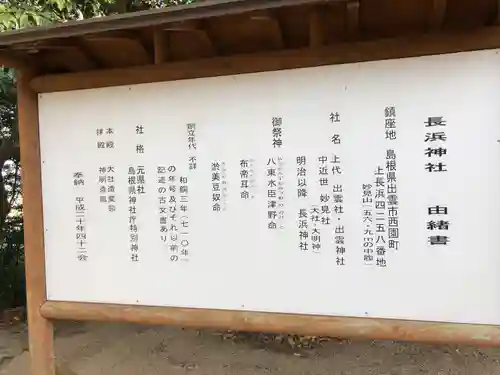 長浜神社　由緒書
鎮座地　島根県出雲市西園町
上長浜四二五八番地
妙見山（五六・九mの中腹）
社名　上代　出雲社・出雲神社
中近世　妙見社
（天社・大明神）
明治以降　長浜神社
御祭神　八束水臣津野命
布帝耳命
淤美豆奴命
創立年代　不詳
和銅三年（七一〇年）
の年号及びそれ以前の
記述の古文書あり
社格　元県社
島根県神社庁特別神社
本殿　大社造変態
拝殿　神明造風
奉納　平成二十年四十二会